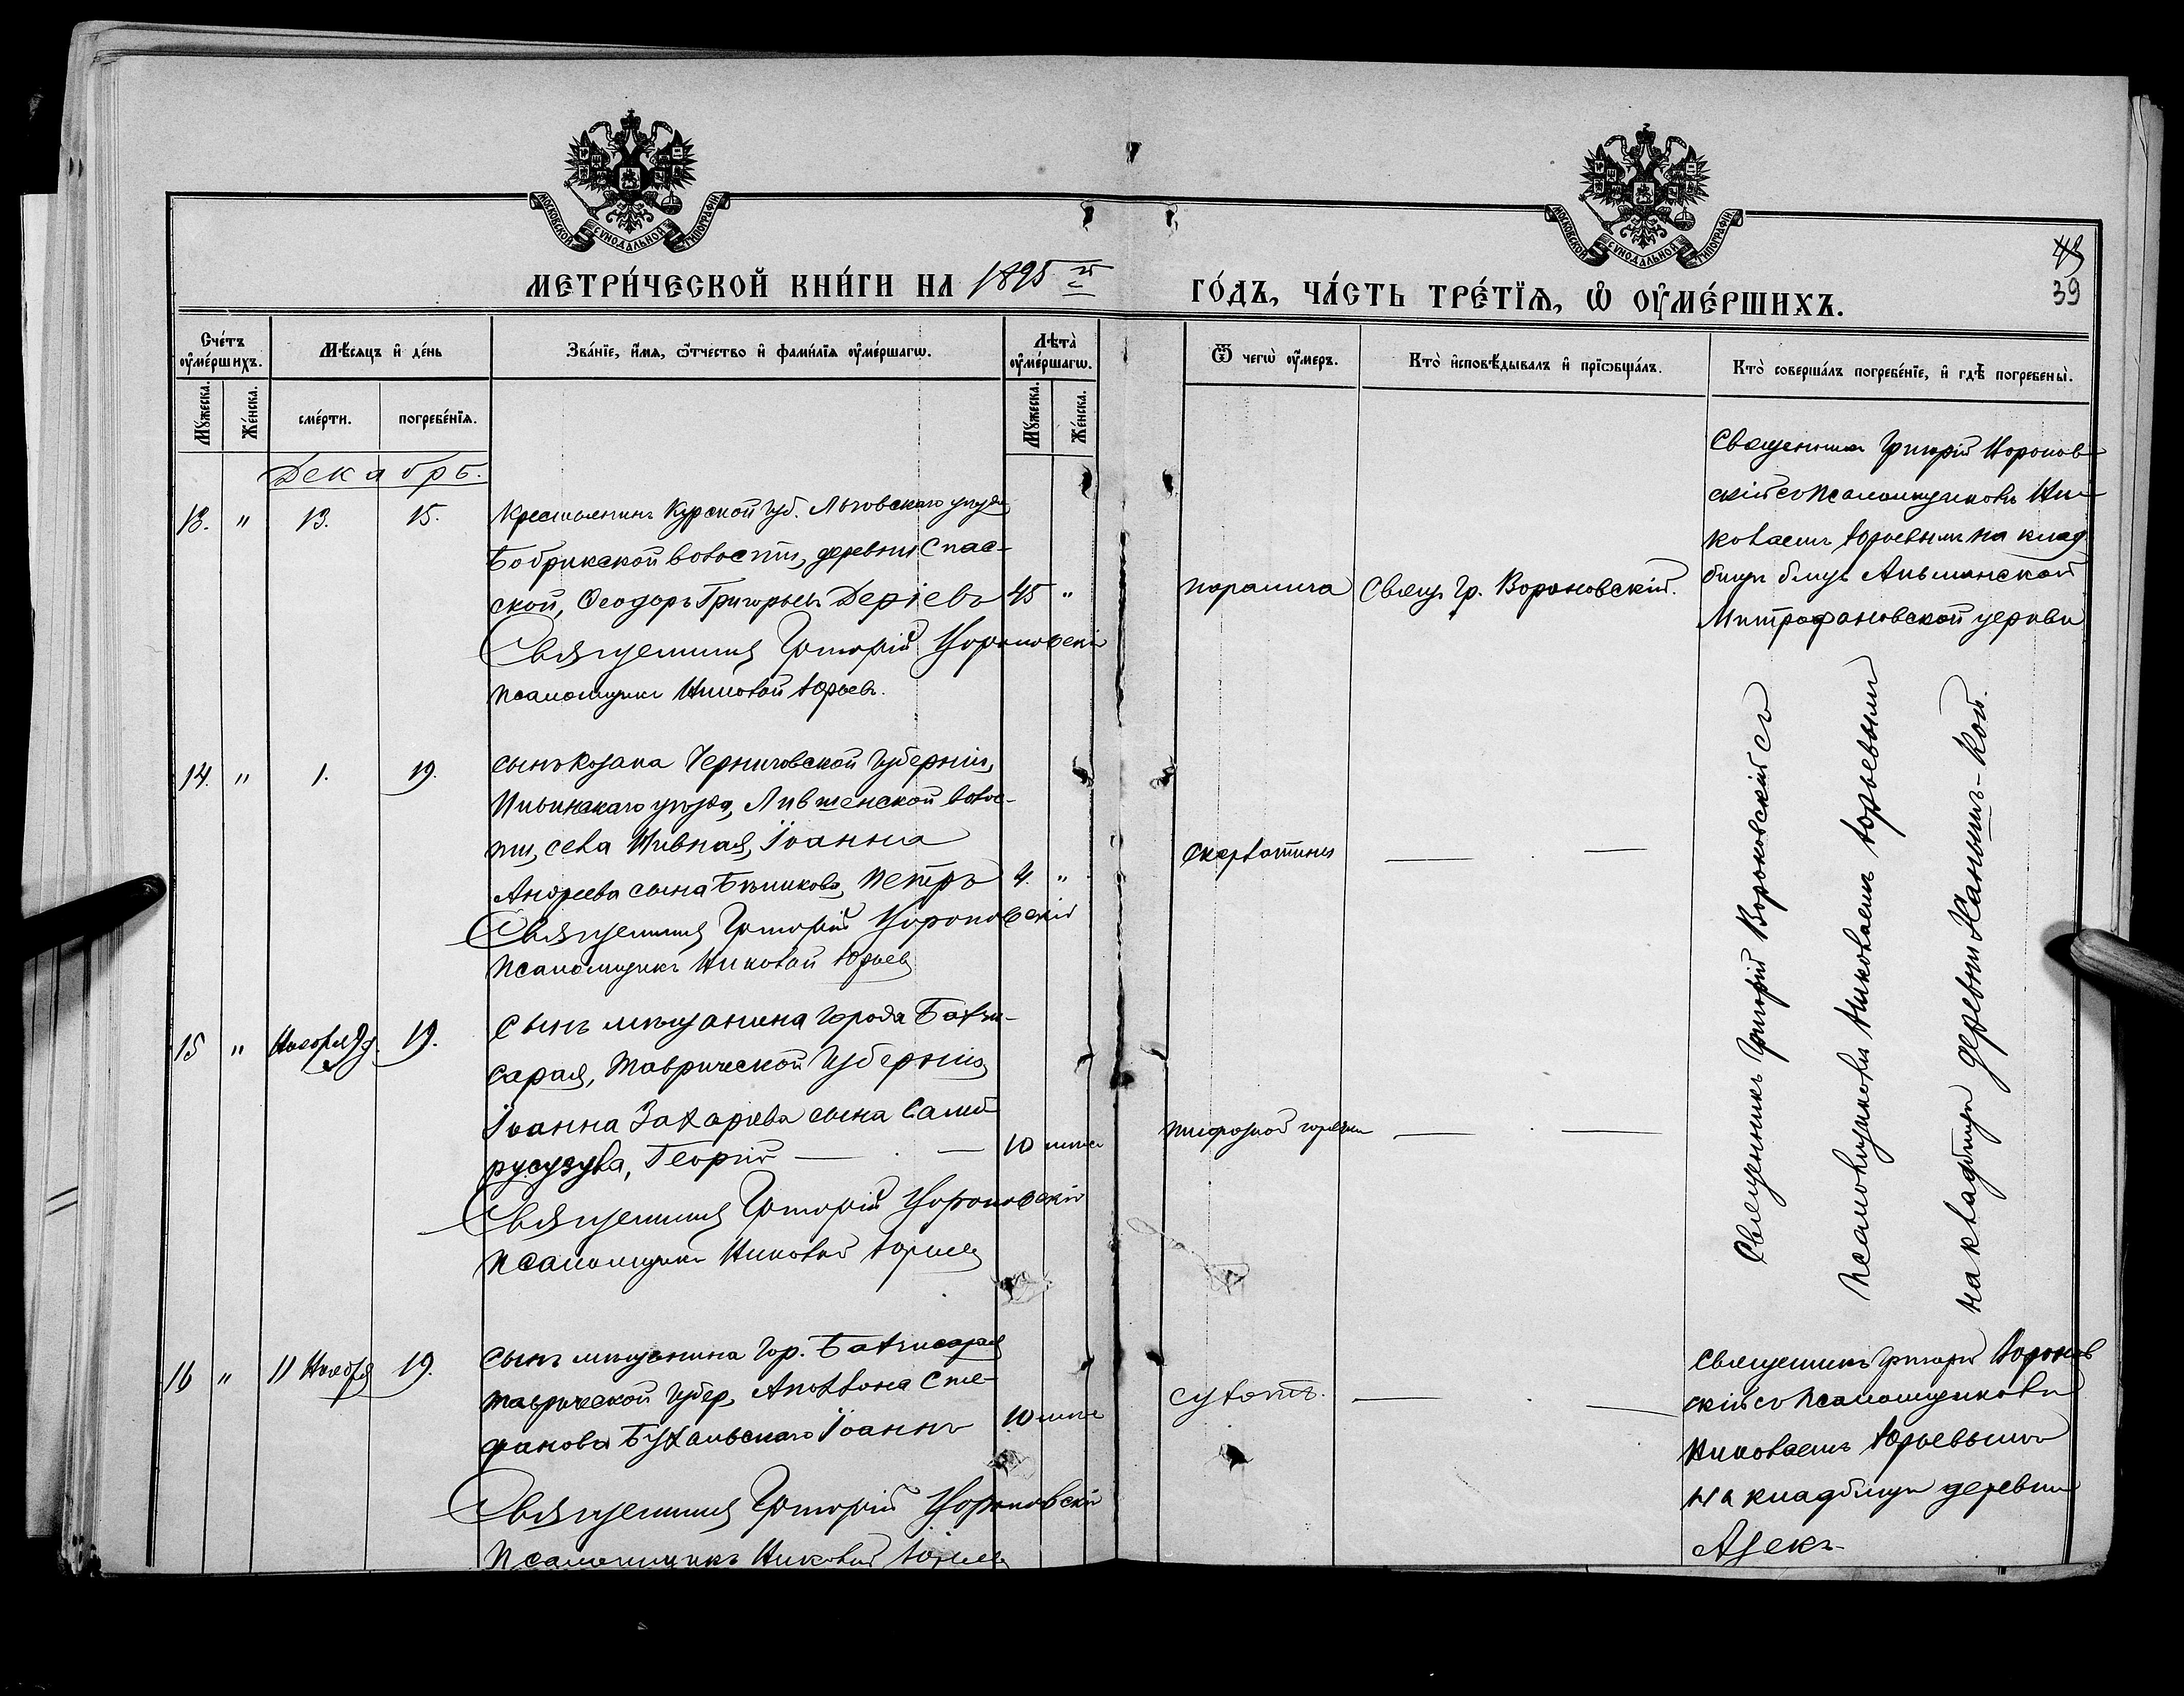 МОСКОВСКОЙ СѴНОДАЛЬНОЙ ТИПОГРАФІИ
МОСКОВСКОЙ СѴНОДАЛЬНОЙ ТИПОГРАФІИ
МЕТРИ́ЧЕСКОЙ КНИ́ГИ НА 1895 й
ГО́ДЪ, ЧА́СТЬ ТРЕ́ТІѦ, Ѡ ОУМЕ́РШИХЪ.
43
39
Сче́тъ оуме́ршихъ.
Мѣ́сяцъ и де́нь
Зва́нїе, и́мя, ѻ́тчество и фами́лїя оуме́ршагѡ.
Лѣта̀ оуме́ршагѡ.
Ѿ чегѡ̀ оу́меръ.
Кто̀ исповѣ́дывалъ и прїѡбща́лъ.
Кто̀ соверша́лъ погребе́нїе, и гдѣ̀ погребены̀.
Му́жеска.
Же́нска.
сме́рти.
погребе́нїя.
Му́жеска.
Же́нска.
Декабрь.
13. " 13. 15.
Крестьянинъ Курской губ. Льговскаго уѣзда
Бобрикской волости, деревни Спас-
ской, Ѳеодоръ Григорьевъ Деріевъ 45 "
Священникъ Григорій Вороновскій
Псаломщикъ Николай Юрьевъ.
паралича
Свящ. Гр. Вороновскій.
Священникъ Григорій Воронов-
скій съ псаломщикомъ Ни-
колаемъ Юрьевымъ на клад
бищѣ близъ Альминской
Митрофановской церкви
14. " 1. 19.
сынъ козака Черниговской губерніи,
уѣзда, волос-
ти, села Ивная, Іоанна
Андреева сына Петръ 4. "
Священникъ Григорій Вороновскій
Псаломщикъ Николай Юрьевъ
скарлатины
Священникъ Григорій Вороновскій съ
псаломщикомъ Николаемъ Юрьевымъ
на кладбищѣ деревни Ханышъ-Кой.
15 " Ноября 19.
Сынъ мѣщанина города Бахчи-
сарая, Таврической губерніи
Іоанна Захарьева сына Сами
русузува, Георгій 10 мѣс
Священникъ Григорій Вороновскій
Псаломщикъ Николай Юрьевъ
тифозной горячки
16 " 11 Ноября 19.
сынъ мѣщанина гор. Бахчисарая
таврической губер, Аполлона Сте-
фанова Бухальскаго Іоаннъ 10 мѣс
Священникъ Григорій Вороновскій
Псаломщикъ Николай Юрьевъ
Священникъ Григорій Воронов
скій съ псаломщикомъ
Николаемъ Юрьевымъ
на кладбищѣ деревни
Азекъ